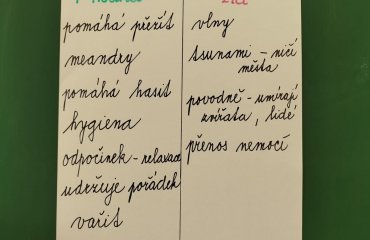 pomáhá přežít
meandry
pomáhá hasit
hygiena
odpočinek - relaxace
udržuje pořádek
vařit
vlny
tsunami - ničí
města
povodně - umírají
zvířata, lidé
přenos nemocí